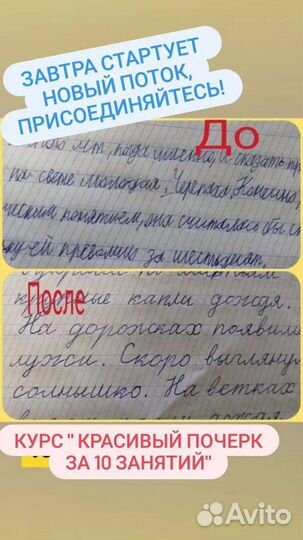 ЗАВТРА СТАРТУЕТ
НОВЫЙ ПОТОК,
ПРИСОЕДИНЯЙТЕСЬ!
До
лет, когда именно, и сказать
на свете молодая, Черепаха, Конечно,
понятием, она считалась бы
ей превалило за шестьдесят.
После
капли дождя.
На дорожках появили
лужи. Скоро выглянул
солнышко. На ветках
КУРС " КРАСИВЫЙ ПОЧЕРК
ЗА 10 ЗАНЯТИЙ"
Avito